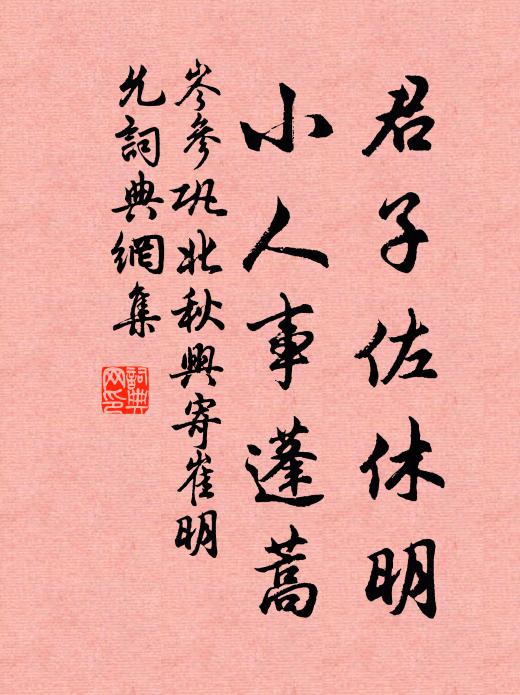 君子佐休明
小人事蓬蒿
岑參巩北秋興寄崔明
允詞典網集
詞典
网印